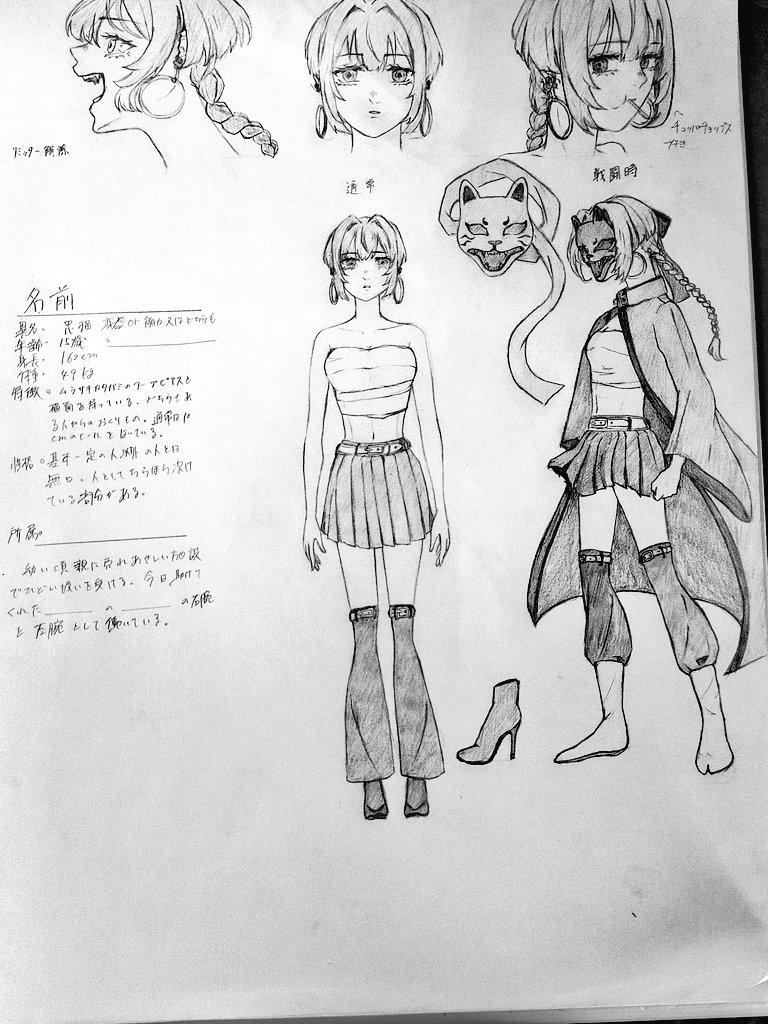 リミッター解除
通常
戦闘時
チュッパチャップス
好き
名前
異名。黒猫
年齢。15歳
身長。162cm
体重。49kg
特徴。ムラサキカタバミのフープピアスと
猫面を持っている。どちらもあ
る人からのおくりもの。通常は10
cmのヒールをはいている。
性格。基本一定の人以外の人とは
無口。人としてちらほら欠け
ている部分がある。
所属。
幼い頃親に売られあやしい施設
でひどい扱いを受ける。今は助けて
くれた の の右腕
と左腕として働いている。